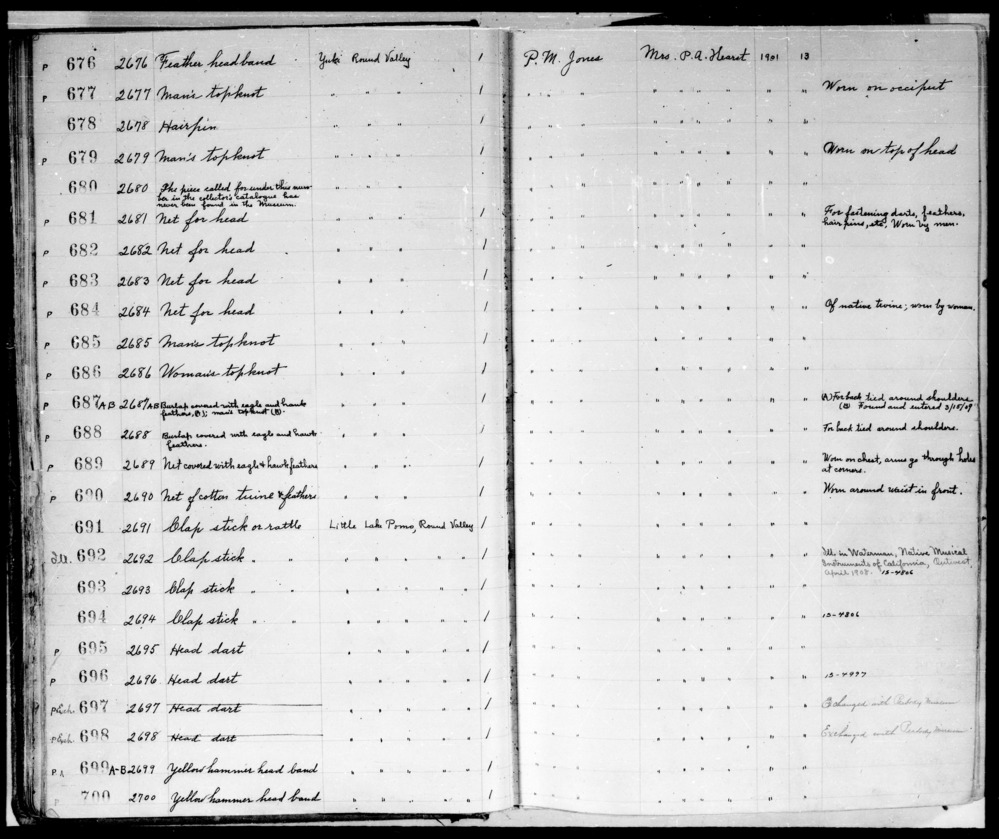 P 676 2676 Feather headband Yuki Round Valley 1 P. M. Jones Mrs. P. A. Hearst 1901 13
P 677 2677 Man's topknot " " " 1 " " " " " " " " " Worn on occiput
678 2678 Hairpin " " " 1 " " " " " " " " "
P 679 2679 Man's topknot " " " 1 " " " " " " " " " Worn on top of head
680 2680 The piece called for under this num-
ber in the collector's catalogue has
never been found in the Museum. " " " " " " " " " " " "
P 681 2681 Net for head " " " 1 " " " " " " " " " For fastening darts, feathers,
hair pins, etc. Worn by men.
P 682 2682 Net for head " " " 1 " " " " " " " " "
P 683 2683 Net for head " " " 1 " " " " " " " " "
P 684 2684 Net for head " " " 1 " " " " " " " " " Of native twine; worn by woman.
P 685 2685 Man's topknot " " " 1 " " " " " " " " "
P 686 2686 Woman's topknot " " " 1 " " " " " " " " "
P 687 AB 2687 AB Burlap covered with eagle and hawk
feathers, (A); man's topknot (B). " " " 1 " " " " " " " " " (A) For back tied around shoulders
(B) Found and entered 3/15/09
P 688 2688 Burlap covered with eagle and hawk
feathers. " " " 1 " " " " " " " " " For back tied around shoulders.
P 689 2689 Net covered with eagle & hawk feathers " " " 1 " " " " " " " " " Worn on chest, arms go through holes
at corners.
P 690 2690 Net of cotton twine & feathers " " " 1 " " " " " " " " " Worn around waist in front.
691 2691 Clap stick or rattle Little Lake Pomo, Round Valley 1 " " " " " " " " "
Ill. 692 2692 Clap stick " " " " " " " 1 " " " " " " " " " Ill. in Waterman, Native Musical
Instruments of California,
April 1908. 15-4806
693 2693 Clap stick " " " " " " " 1 " " " " " " " " "
694 2694 Clap stick " " " " " " " 1 " " " " " " " " " 15-4806
P 695 2695 Head dart " " " " " 1 " " " " " " " " "
P 696 2696 Head dart " " " " " 1 " " " " " " " " " 15-4997
P Exch. 697 2697 Head dart " " " " " 1 " " " " " " " " " Exchanged with Peabody Museum
P Exch. 698 2698 Head dart " " " " " 1 " " " " " " " " " Exchanged with Peabody Museum
P A 699 A-B 2699 Yellow hammer head band " " " " " 1 " " " " " " " " "
P 700 2700 Yellow hammer head band " " " " " 1 " " " " " " " " "